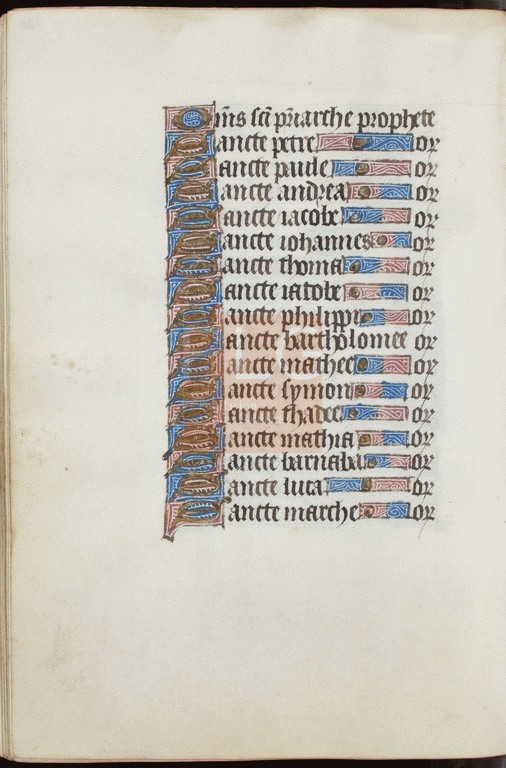 Oms scī pr̄iarche prophete
Sancte petre or
Sancte paule or
Sancte andrea or
Sancte iacobe or
Sancte iohannes or
Sancte thoma or
Sancte iacobe or
Sancte philippe or
Sancte bartholomee or
Sancte mathee or
Sancte symon or
Sancte thadee or
Sancte mathia or
Sancte barnaba or
Sancte luca or
Sancte marche or